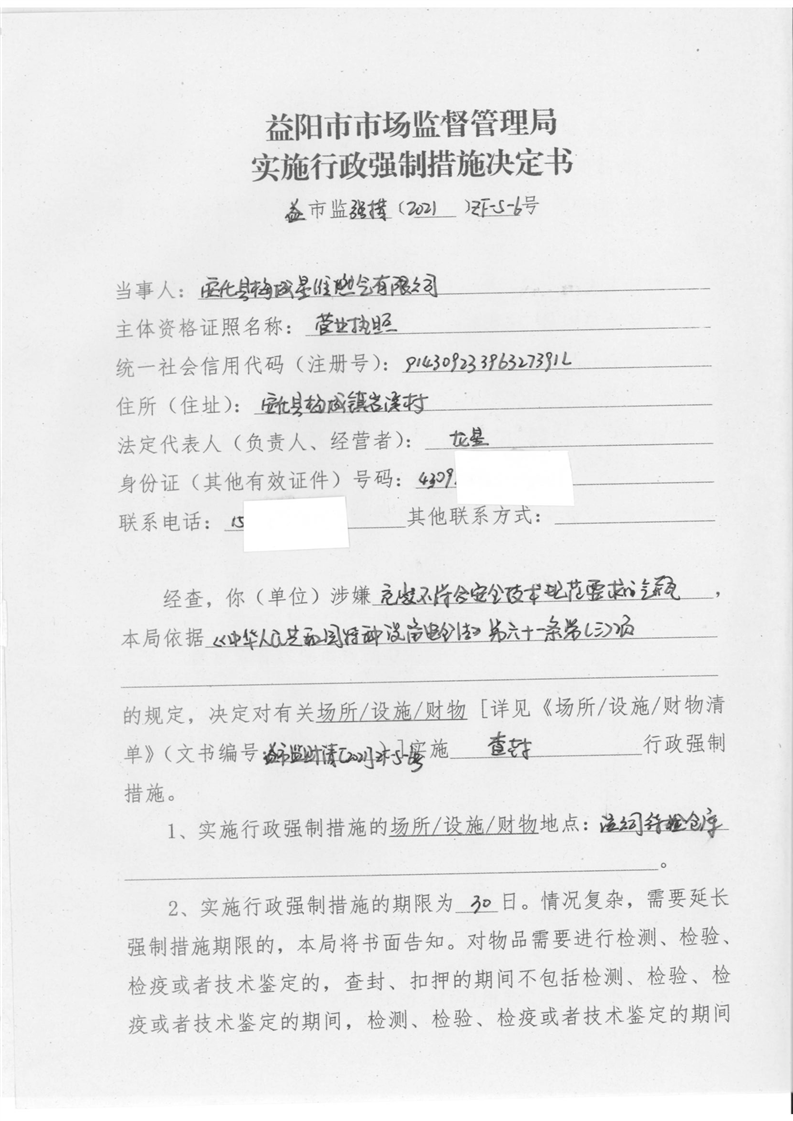 益阳市市场监督管理局
实施行政强制措施决定书
益市监强措（2021）ZF-5-6号
当事人：安化县梅城星佳燃气有限公司
主体资格证照名称：营业执照
统一社会信用代码（注册号）：91430923396327391L
住所（住址）：安化县梅城镇岩溪村
法定代表人（负责人、经营者）：龙星
身份证（其他有效证件）号码：4309
联系电话：15 其他联系方式：
经查，你（单位）涉嫌充装不符合安全技术规范要求的气瓶，
本局依据《中华人民共和国特种设备安全法》第六十一条第（三）项
的规定，决定对有关场所/设施/财物［详见《场所/设施/财物清
单》（文书编号益市监财清［2021］ZF-5-6号］实施查封行政强制
措施。
1、实施行政强制措施的场所/设施/财物地点：该公司待检仓库
。
2、实施行政强制措施的期限为30日。情况复杂，需要延长
强制措施期限的，本局将书面告知。对物品需要进行检测、检验、
检疫或者技术鉴定的，查封、扣押的期间不包括检测、检验、检
疫或者技术鉴定的期间，检测、检验、检疫或者技术鉴定的期间